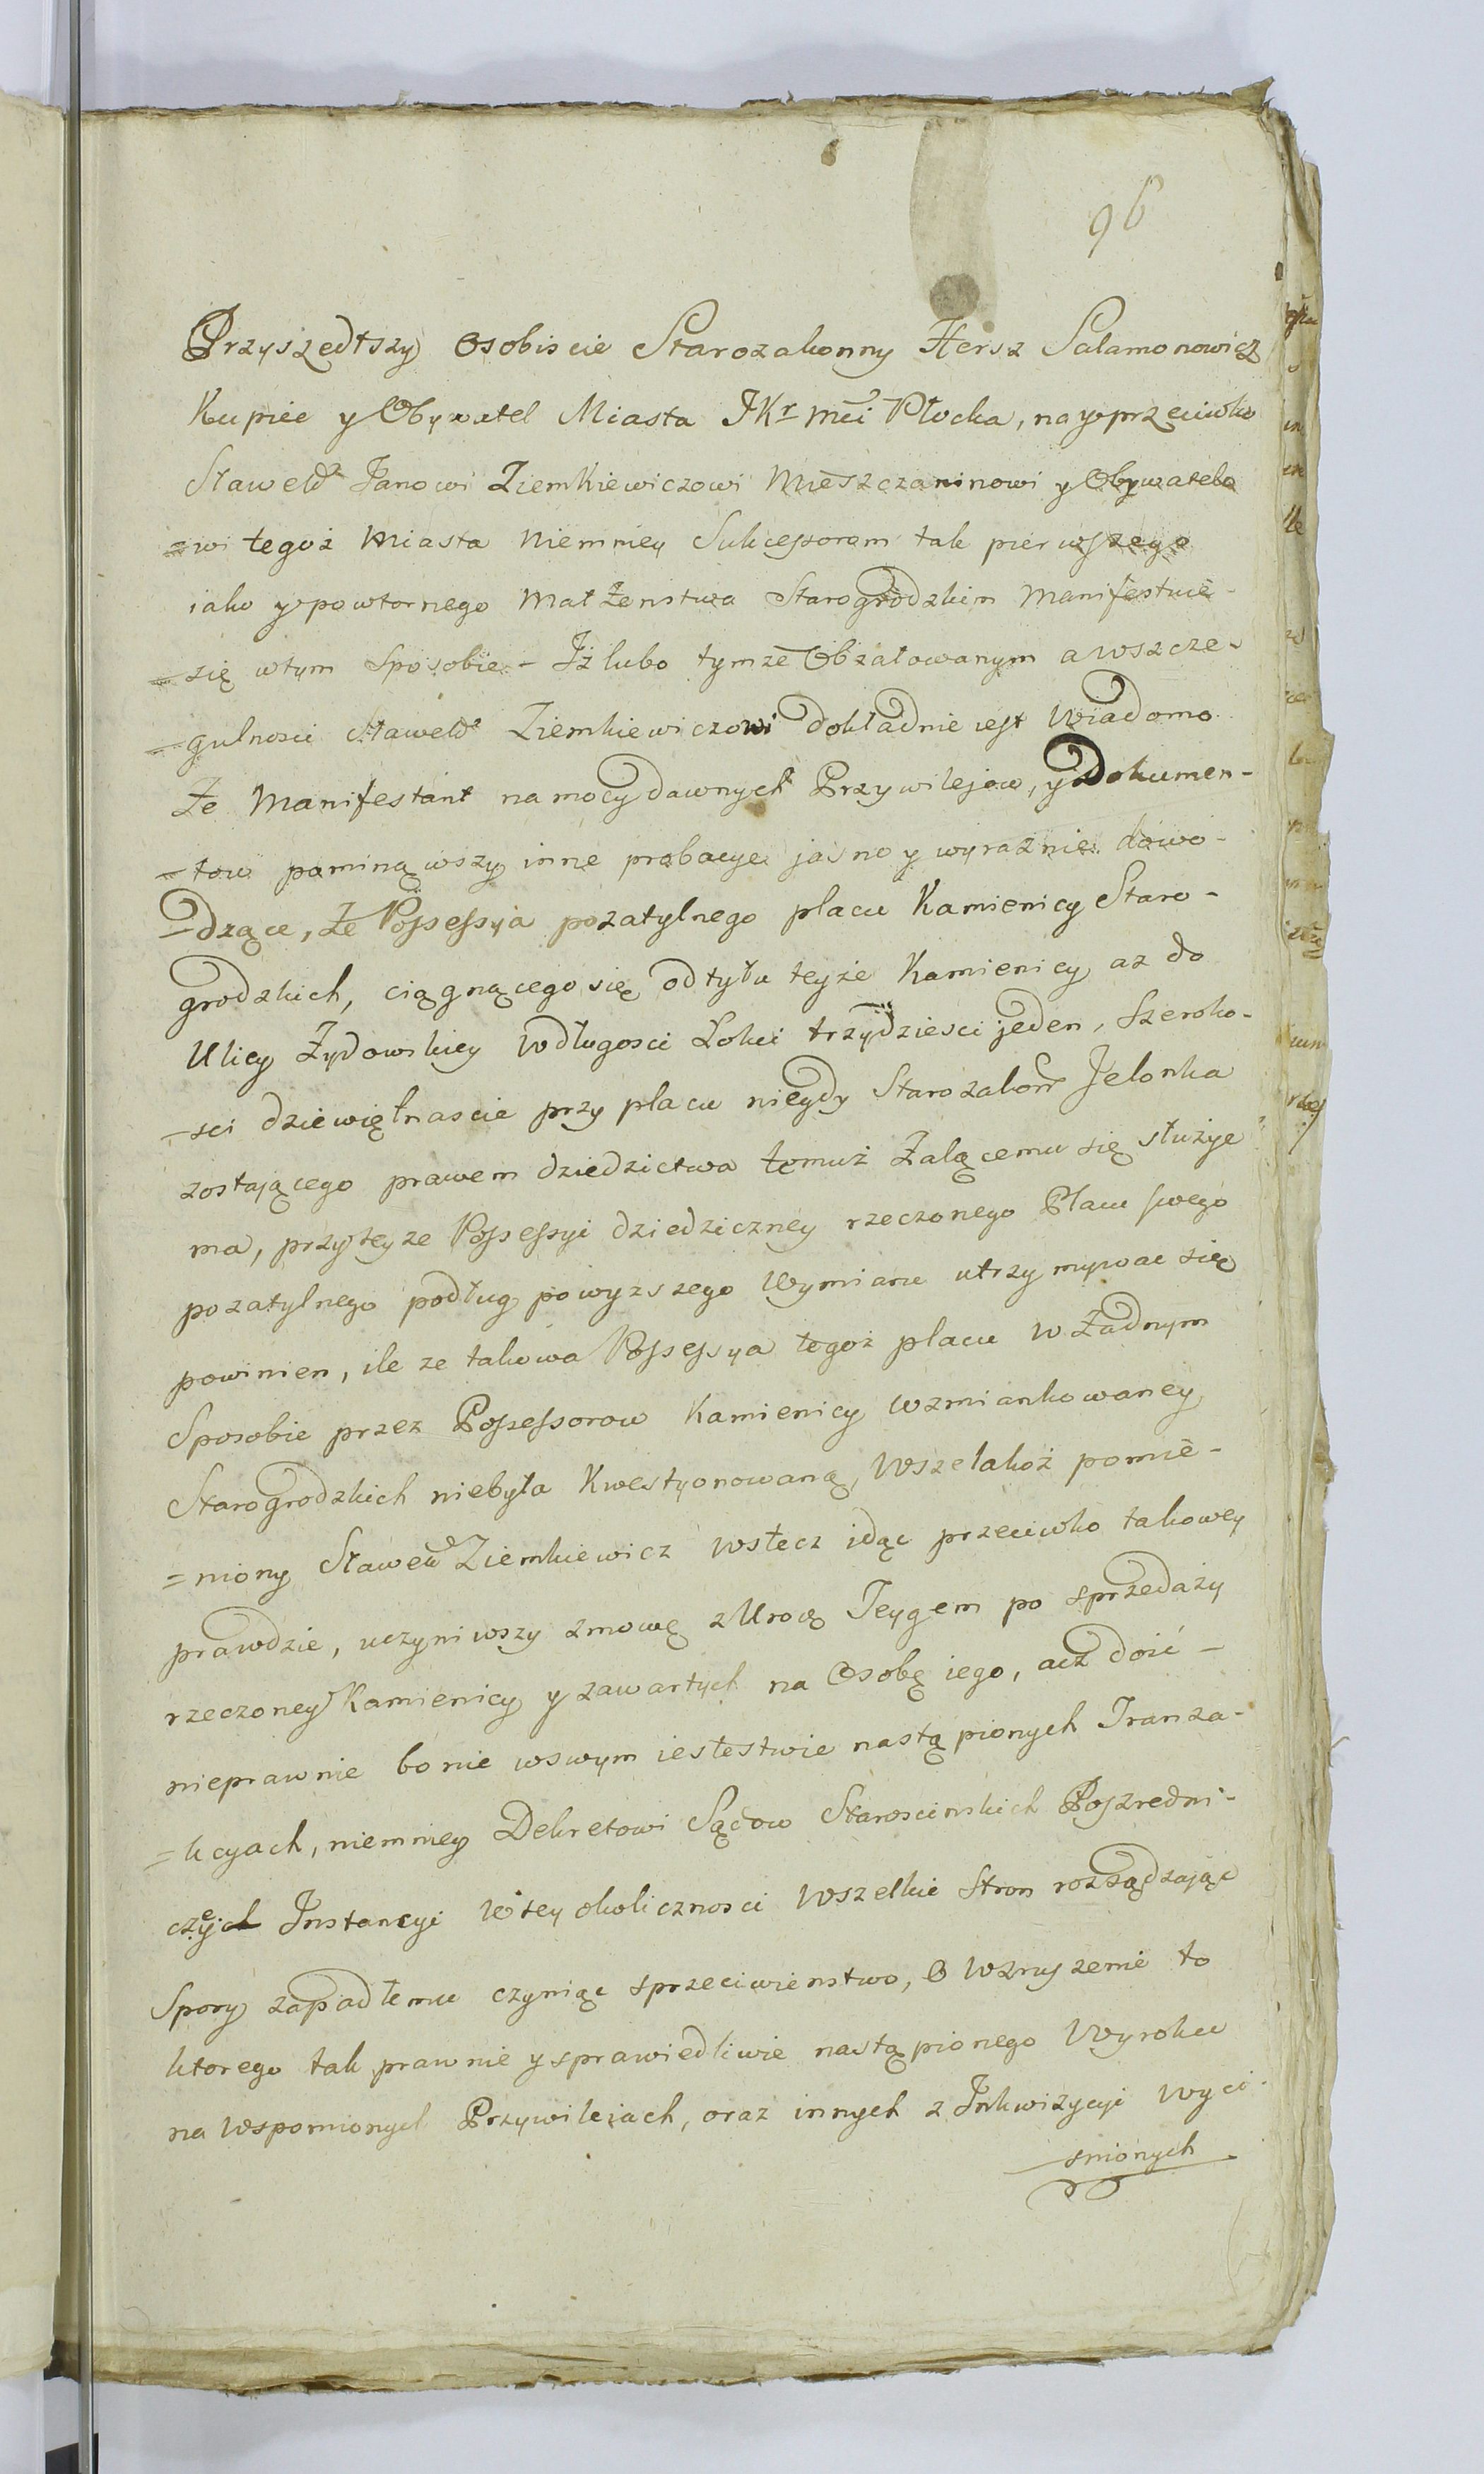 96
Przyszedłszy osobiscie Starozakonny Hersz Salamonowicz
Kupiec y Obywatel Miasta JKr Mci Płocka, na y przeciwko
Sławetd Janowi Ziemkiewiczowi Mieszczaninowi y Obywatelo
=wi tegoż Miasta niemniey Sukcessorom tak pierwszego
iako y powtornego Małżenstwa Starogrodzkim Manifestuie
=się w tym sposobie - Iż lubo tymże Obżałowanym a wszcze-
=gulnosci Sławetd Ziemkiewiczowi dokładnie iest wiadomo
Że Manifestant na mocy dawnych Przywilejow, y Dokumen-
=tow pominąwszy inne probacye jasno y wyraznie dowo-
=dzące, Że Possessyia pozatylnego placu Kamienicy Staro-
grodzkich, ciągnącego się od tyłu teyże Kamienicy aż do
Ulicy Żydowskiey w długosci Łokci trzydziesci jeden, szeroko-
=sci dziewiętnascie przy placu niegdy Starozakon Jelonka
zostającego prawem dziedzictwa temuż Żalącemu się służyc
ma, przy teyze Possessyi dziedziczney rzeczonego Placu swego
pozatylnego podług powyzszego Wymiaru utrzymywac się
powinien, ile ze takowa Possessya tegoż placu w Żadnym
Sposobie przez Possessorow Kamienicy wzmiankowaney
Starogrodzkich niebyła Kwestyonowaną, Wszelakoż pomie-
=niony Sławetd Ziemkiewicz wstecz idąc przeciwko takowey
prawdzie, uczyniwszy zmowę z Urod Teygem po sprzedaży
rzeczoney Kamienicy y zawartych na Osobę iego, acz dość -
nieprawnie bo nie w swym iestestwie nastąpionych Tranza-
=kcyach, niemniey Dekretowi Sądow Staroscinskich Poszredni-
czeych Instancyi w tey okolicznosci Wszelkie Stron rozsądzając
Spory zapadłemu czyniąc sprzeciwienstwo, o wzruszenie to
ktorego tak prawnie y sprawiedliwie nastąpionego Wyroku
na wspomionych Przywilejach, oraz innych z Inkwizycyi Wyci-
snionych